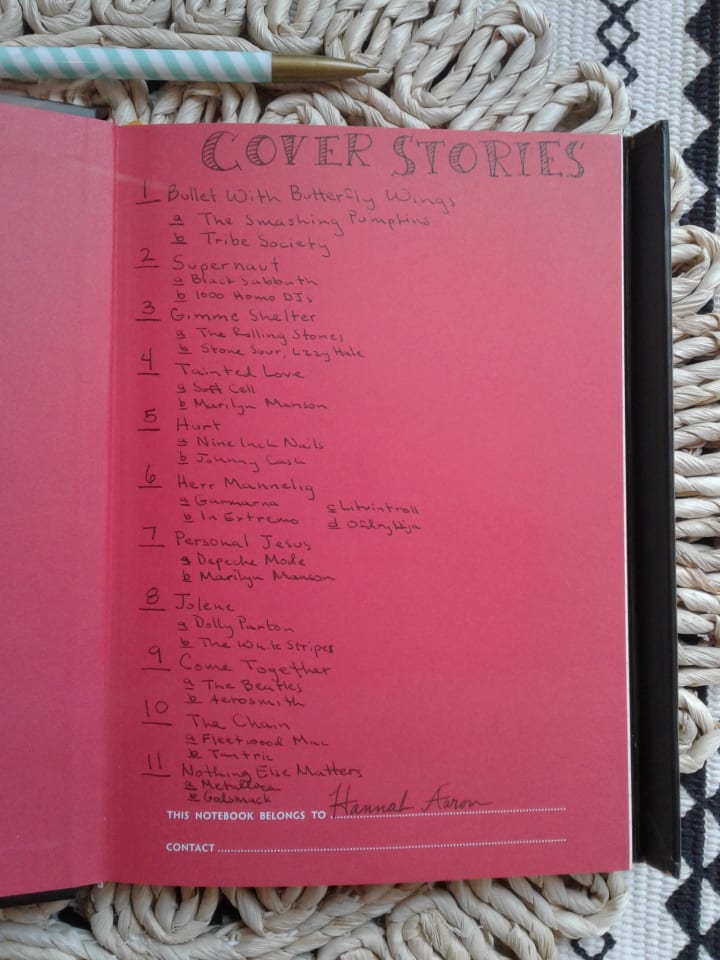 COVER STORIES
1 Bullet With Butterfly Wings
a The Smashing Pumpkins
b Tribe Society
2 Supernaut
a Black Sabbath
b 1000 Homo DJs
3 Gimme Shelter
a The Rolling Stones
b Stone Sour, Lzzy Hale
4 Tainted Love
a Soft Cell
b Marilyn Manson
5 Hurt
a Nine Inch Nails
b Johnny Cash
6 Herr Mannelig
a Garmarna c Litvintroll
b In Extremo d
7 Personal Jesus
a Depeche Mode
b Marilyn Manson
8 Jolene
a Dolly Parton
b The White Stripes
9 Come Together
a The Beatles
b Aerosmith
10 The Chain
a Fleetwood Mac
b Tantric
11 Nothing Else Matters
a Metallica
b Godsmack
THIS NOTEBOOK BELONGS TO Hannah Aaron
CONTACT